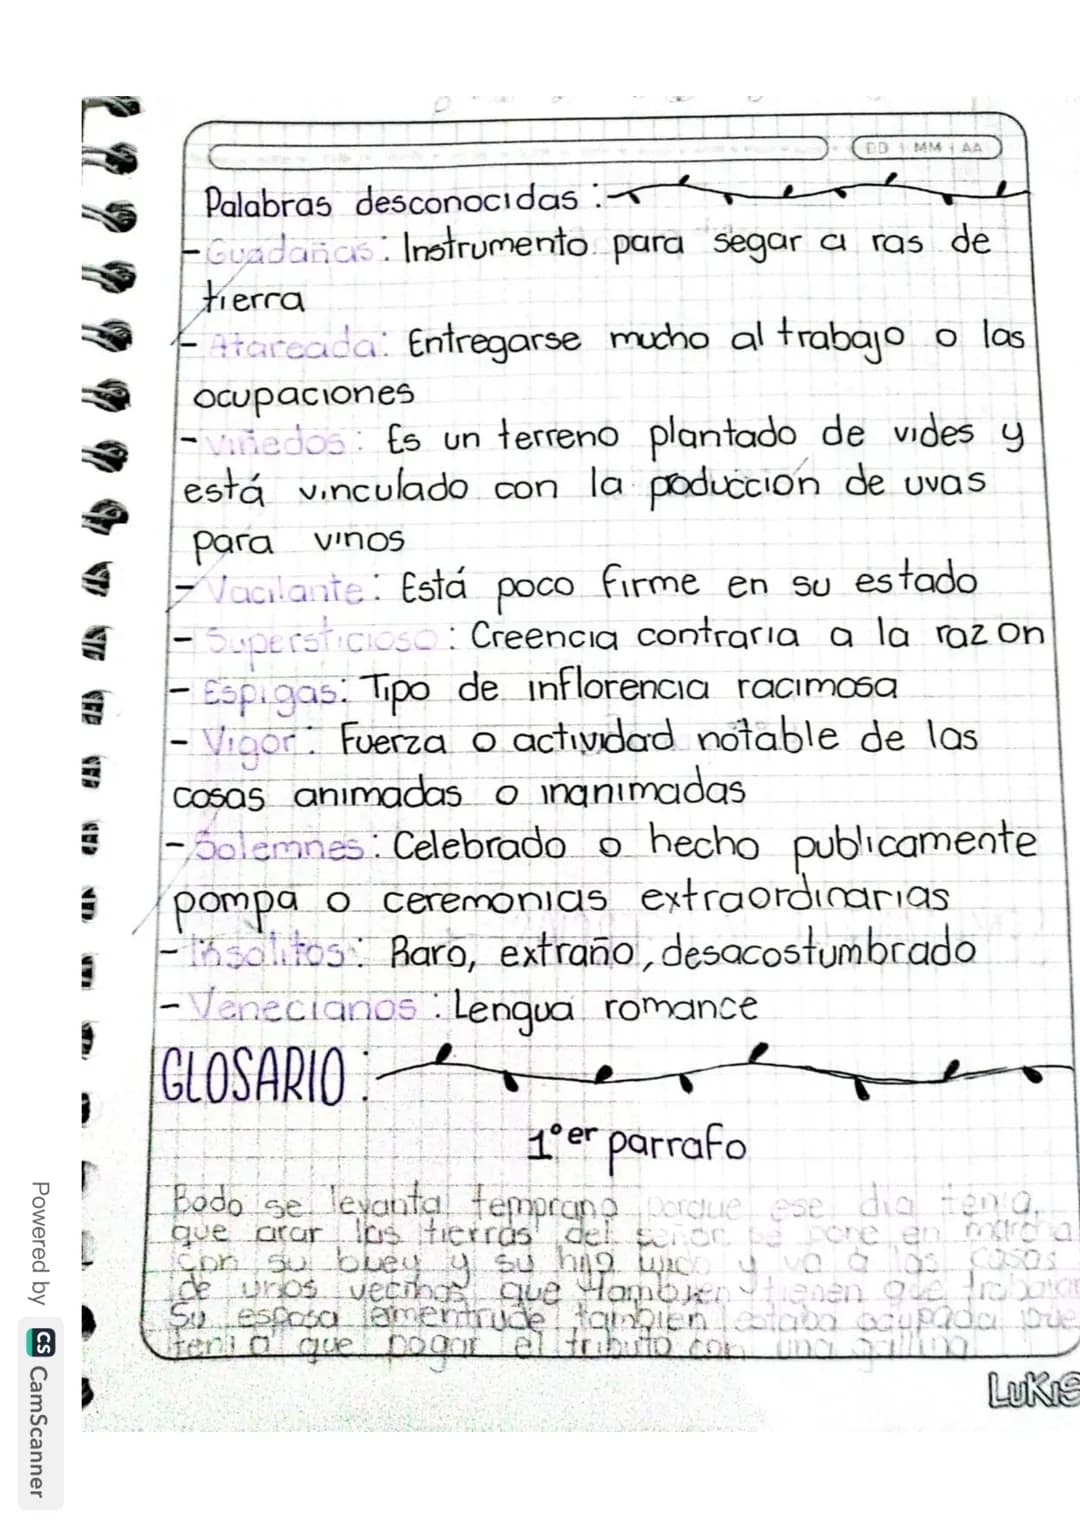 DD | MM | AA
Palabras desconocidas :
- Guadañas: Instrumento para segar a ras de
tierra
- Atareada: Entregarse mucho al trabajo o las
ocupaciones
- Viñedos: Es un terreno plantado de vides y
está vinculado con la poducción de uvas
para vinos
- Vacilante: Está poco firme en su estado
- Supersticioso: Creencia contraria a la razon
- Espigas: Tipo de inflorencia racimosa
- Vigor: Fuerza o actividad notable de las
cosas animadas o inanimadas
- Solemnes: Celebrado o hecho publicamente
pompa o ceremonias extraordinarias
- Insolitos: Raro, extraño, desacostumbrado
- Venecianos: Lengua romance
GLOSARIO:
1°er parrafo
Bodo se levanta temprano porque ese dia tenia
que arar las tierras del señor se pone en marcha
con su buey y su hijo y va a las casas
de unos vecinos que tambien tienen que trabajar
Su esposa Ermentrude tambien estaba ocupada
tenia que pagar el tributo con una gallina
LUKIS
Powered by CS CamScanner